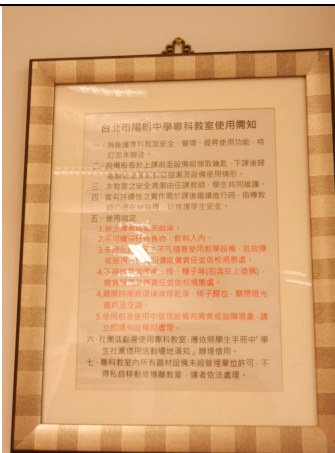 台北市陽明中學專科教室使用需知
一、為維護專科教室安全、管理、提昇使用功能，特
訂定本辦法。
二、設備股長於上課前至設備組領取鑰匙，下課後歸
還
三、本教室之安全清潔由任課教師、學生共同維護。
四、進行時，指導教
師，以維護學生安全。
五、使用規定
1.依上課
2.不可攜帶任何食物、飲料入內。
3.不隨意使用教學設備，若故障
責任並依校規懲處。
4.不得、椅、櫃子等(包含在上塗鴉)，
責任並依校規懲處。
4.離開時需將環境清理乾淨，椅子歸位，關閉燈光
窗戶及空調。
5.使用前及使用中發現設備有異常或故障現象，請
立即通知設備組處理。
六、社團活動需使用專科教室，應依照學生手冊中「學
生社團借用活動場地須知」辦理借用。
七、專科教室內所有器材設備未經管理單位許可，不
得私自移動或攜離教室，違者依法處理。